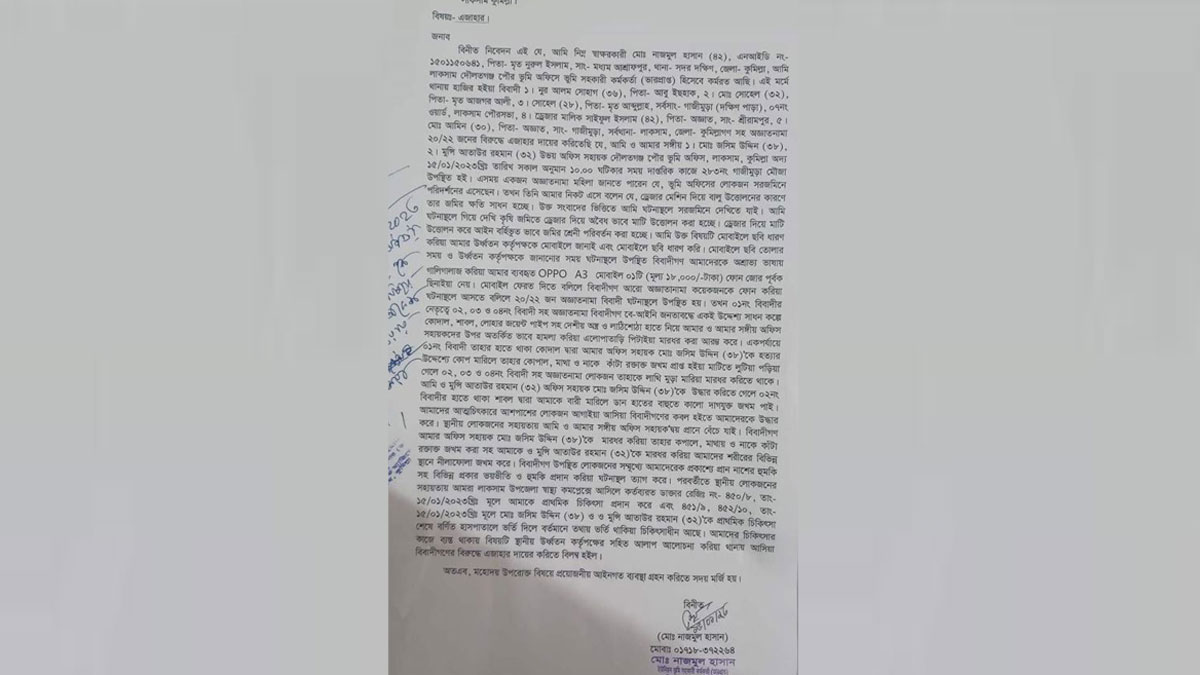 লাকসাম কুমিল্লা।
বিষয়ঃ- এজাহার।
জনাব
বিনীত নিবেদন এই যে, আমি নিম্ন স্বাক্ষরকারী মোঃ নাজমুল হাসান (৪২), এনআইডি নং-
১৫০১১৫০৬৪১, পিতা- মৃত নুরুল ইসলাম, সাং- মধ্যম আশ্রাফপুর, থানা- সদর দক্ষিণ, জেলা- কুমিল্লা, আমি
লাকসাম দৌলতগঞ্জ পৌর ভুমি অফিসে ভুমি সহকারী কর্মকর্তা (ভারপ্রাপ্ত) হিসেবে কর্মরত আছি। এই মর্মে
থানায় হাজির হইয়া বিবাদী ১। নুর আলম সোহাগ (৩৬), পিতা- আবু ইছহাক, ২। মোঃ সোহেল (৩২),
পিতা- মৃত আজগর আলী, ৩। সোহেল (২৮), পিতা- মৃত আব্দুল্লাহ, সর্বসাং- গাজীমুড়া (দক্ষিণ পাড়া), ০৭নং
ওয়ার্ড, লাকসাম পৌরসভা, ৪। ড্রেজার মালিক সাইফুল ইসলাম (৪২), পিতা- অজ্ঞাত, সাং- শ্রীরামপুর, ৫।
মোঃ আমিন (৩০), পিতা- অজ্ঞাত, সাং- গাজীমুড়া, সর্বথানা- লাকসাম, জেলা- কুমিল্লাগণ সহ অজ্ঞাতনামা
২০/২২ জনের বিরুদ্ধে এজাহার দায়ের করিতেছি যে, আমি ও আমার সঙ্গীয় ১। মোঃ জসিম উদ্দিন (৩৮),
২। মুন্সি আতাউর রহমান (৩২) উভয় অফিস সহায়ক দৌলতগঞ্জ পৌর ভুমি অফিস, লাকসাম, কুমিল্লা অদ্য
১৫/০১/২০২৩খ্রিঃ তারিখ সকাল অনুমান ১০.০০ ঘটিকার সময় দাপ্তরিক কাজে ২৮৩নং গাজীমুড়া মৌজা
উপস্থিত হই। এসময় একজন অজ্ঞাতনামা মহিলা জানতে পারেন যে, ভুমি অফিসের লোকজন সরজমিনে
পরিদর্শনের এসেছেন। তখন তিনি আমার নিকট এসে বলেন যে, ড্রেজার মেশিন দিয়ে বালু উত্তোলনের কারণে
তার জমির ক্ষতি সাধন হচ্ছে। উক্ত সংবাদের ভিত্তিতে আমি ঘটনাস্থলে সরজমিনে দেখিতে যাই। আমি
ঘটনাস্থলে গিয়ে দেখি কৃষি জমিতে ড্রেজার দিয়ে অবৈধ ভাবে মাটি উত্তোলন করা হচ্ছে। ড্রেজার দিয়ে মাটি
উত্তোলন করে আইন বর্হিভুত ভাবে জমির শ্রেনী পরিবর্তন করা হচ্ছে। আমি উক্ত বিষয়টি মোবাইলে ছবি ধারণ
করিয়া আমার উর্ধ্বতন কর্তৃপক্ষকে মোবাইলে জানাই এবং মোবাইলে ছবি ধারণ করি। মোবাইলে ছবি তোলার
সময় ও উর্ধ্বতন কর্তৃপক্ষকে জানানোর সময় ঘটনাস্থলে উপস্থিত বিবাদীগণ আমাদেরকে অশ্রাব্য ভাষায়
গালিগালাজ করিয়া আমার ব্যবহৃত OPPO A3 মোবাইল ০১টি (মূল্য ১৮,০০০/-টাকা) ফোন জোর পূর্বক
ছিনাইয়া নেয়। মোবাইল ফেরত দিতে বলিলে বিবাদীগণ আরো অজ্ঞাতানামা কয়েকজনকে ফোন করিয়া
ঘটনাস্থলে আসতে বলিলে ২০/২২ জন অজ্ঞাতনামা বিবাদী ঘটনাস্থলে উপস্থিত হয়। তখন ০১নং বিবাদীর
নেতৃত্বে ০২, ০৩ ও ০৪নং বিবাদী সহ অজ্ঞাতনামা বিবাদীগণ বে-আইনি জনতাবদ্ধে একই উদ্দেশ্য সাধন কল্পে
কোদাল, শাবল, লোহার জয়েন্ট পাইপ সহ দেশীয় অস্ত্র ও লাঠিশোঠা হাতে নিয়ে আমার ও আমার সঙ্গীয় অফিস
সহায়কদের উপর অতর্কিত ভাবে হামলা করিয়া এলোপাতাড়ি পিটাইয়া মারধর করা আরম্ভ করে। একপর্যায়ে
০১নং বিবাদী তাহার হাতে থাকা কোদাল দ্বারা আমার অফিস সহায়ক মোঃ জসিম উদ্দিন (৩৮)'কে হত্যার
উদ্দেশ্যে কোপ মারিলে তাহার কোপাল, মাথা ও নাকে কাঁটা রক্তাক্ত জখম প্রাপ্ত হইয়া মাটিতে লুটিয়া পড়িয়া
গেলে ০২, ০৩ ও ০৪নং বিবাদী সহ অজ্ঞাতনামা লোকজন তাহাকে লাথি মুড়া মারিয়া মারধর করিতে থাকে।
আমি ও মুন্সি আতাউর রহমান (৩২) অফিস সহায়ক মোঃ জসিম উদ্দিন (৩৮)'কে উদ্ধার করিতে গেলে ০২নং
বিবাদীর হাতে থাকা শাবল দ্বারা আমাকে বারী মারিলে ডান হাতের বাহুতে কালো দাগযুক্ত জখম পাই।
আমাদের আত্মচিৎকারে আশপাশের লোকজন আগাইয়া আসিয়া বিবাদীগণের কবল হইতে আমাদেরকে উদ্ধার
করে। স্থানীয় লোকজনের সহায়তায় আমি ও আমার সঙ্গীয় অফিস সহায়ক'দ্বয় প্রানে বেঁচে যাই। বিবাদীগণ
আমার অফিস সহায়ক মোঃ জসিম উদ্দিন (৩৮)'কে মারধর করিয়া তাহার কপালে, মাথায় ও নাকে কাঁটা
রক্তাক্ত জখম করা সহ আমাকে ও মুন্সি আতাউর রহমান (৩২)'কে মারধর করিয়া আমাদের শরীরের বিভিন্ন
স্থানে নীলাফোলা জখম করে। বিবাদীগণ উপস্থিত লোকজনের সম্মুখে আমাদেরেক প্রকাশ্যে প্রান নাশের হুমকি
সহ বিভিন্ন প্রকার ভয়ভীতি ও হুমকি প্রদান করিয়া ঘটনাস্থল ত্যাগ করে। পরবর্তীতে স্থানীয় লোকজনের
সহায়তায় আমরা লাকসাম উপজেলা স্বাস্থ্য কমপ্লেক্সে আসিলে কর্তব্যরত ডাক্তার রেজিঃ নং- ৪৫০/৮, তাং-
১৫/০১/২০২৩খ্রিঃ মূলে আমাকে প্রাথমিক চিকিৎসা প্রদান করে এবং ৪৫১/৯, ৪৫২/১০, তাং-
১৫/০১/২০২৩খ্রিঃ মূলে মোঃ জসিম উদ্দিন (৩৮) ও ও মুন্সি আতাউর রহমান (৩২)'কে প্রাথমিক চিকিৎসা
শেষে বর্ণিত হাসপাতালে ভর্তি দিলে বর্তমানে তথায় ভর্তি থাকিয়া চিকিৎসাধীন আছে। আমাদের চিকিৎসার
কাজে ব্যস্ত থাকায় বিষয়টি স্থানীয় উর্ধ্বতন কর্তৃপক্ষের সহিত আলাপ আলোচনা করিয়া থানায় আসিয়া
বিবাদীগণের বিরুদ্ধে এজাহার দায়ের করিতে বিলম্ব হইল।
অতএব, মহোদয় উপরোক্ত বিষয়ে প্রয়োজনীয় আইনগত ব্যবস্থা গ্রহন করিতে সদয় মর্জি হয়।
বিনীত
(মোঃ নাজমুল হাসান)
মোবাঃ ০১৭১৮-৩৭২২৬৪
মোঃ নাজমুল হাসান